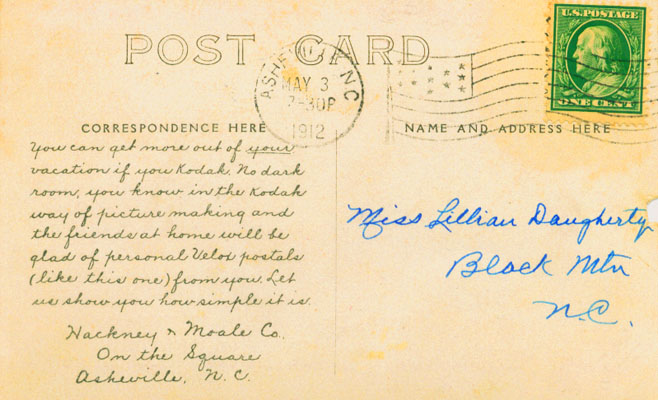 POST CARD
U.S. POSTAGE
ONE CENT
ASHEVILLE N.C.
MAY 3
1912
CORRESPONDENCE HERE
You can get more out of your
vacation if you Kodak. No dark
room, you know in the Kodak
way of picture making and
the friends at home will be
glad of personal Velox postals
(like this one) from you. Let
us show you how simple it is.
Hackney & Moale Co.
On the Square
Asheville, N.C.
NAME AND ADDRESS HERE
Miss Lillian Daugherty
Black Mtn
N.C.